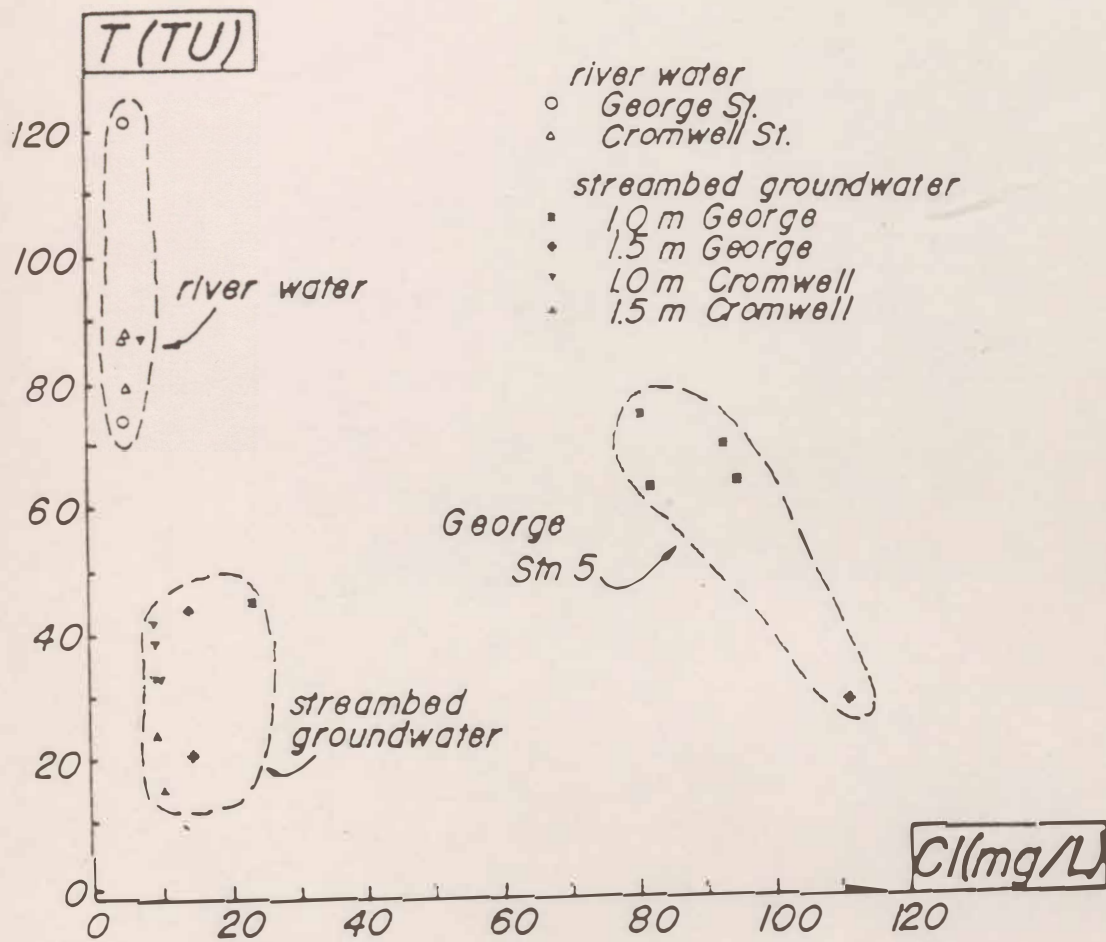 T (TU)
river water
George St.
Cromwell St.
streambed groundwater
1.0 m George
1.5 m George
1.0 m Cromwell
1.5 m Cromwell
120
100
80
60
40
20
0
river water
George
Stn 5
streambed
groundwater
Cl(mg/L)
0 20 40 60 80 100 120